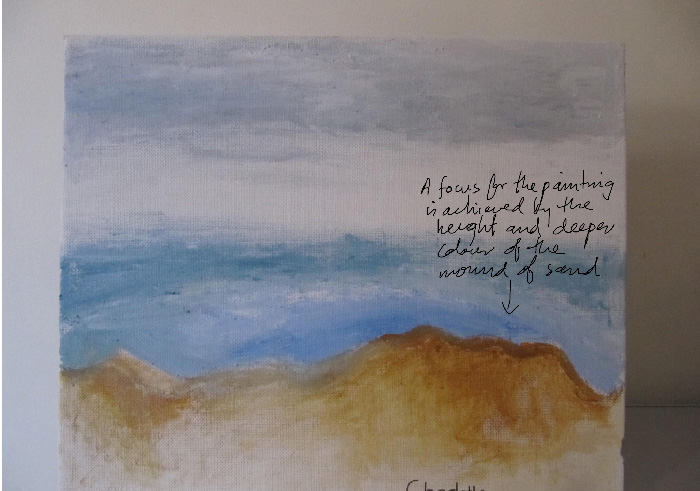 A focus for the painting
is achieved by the
height and deeper
colour of the
mound of sand